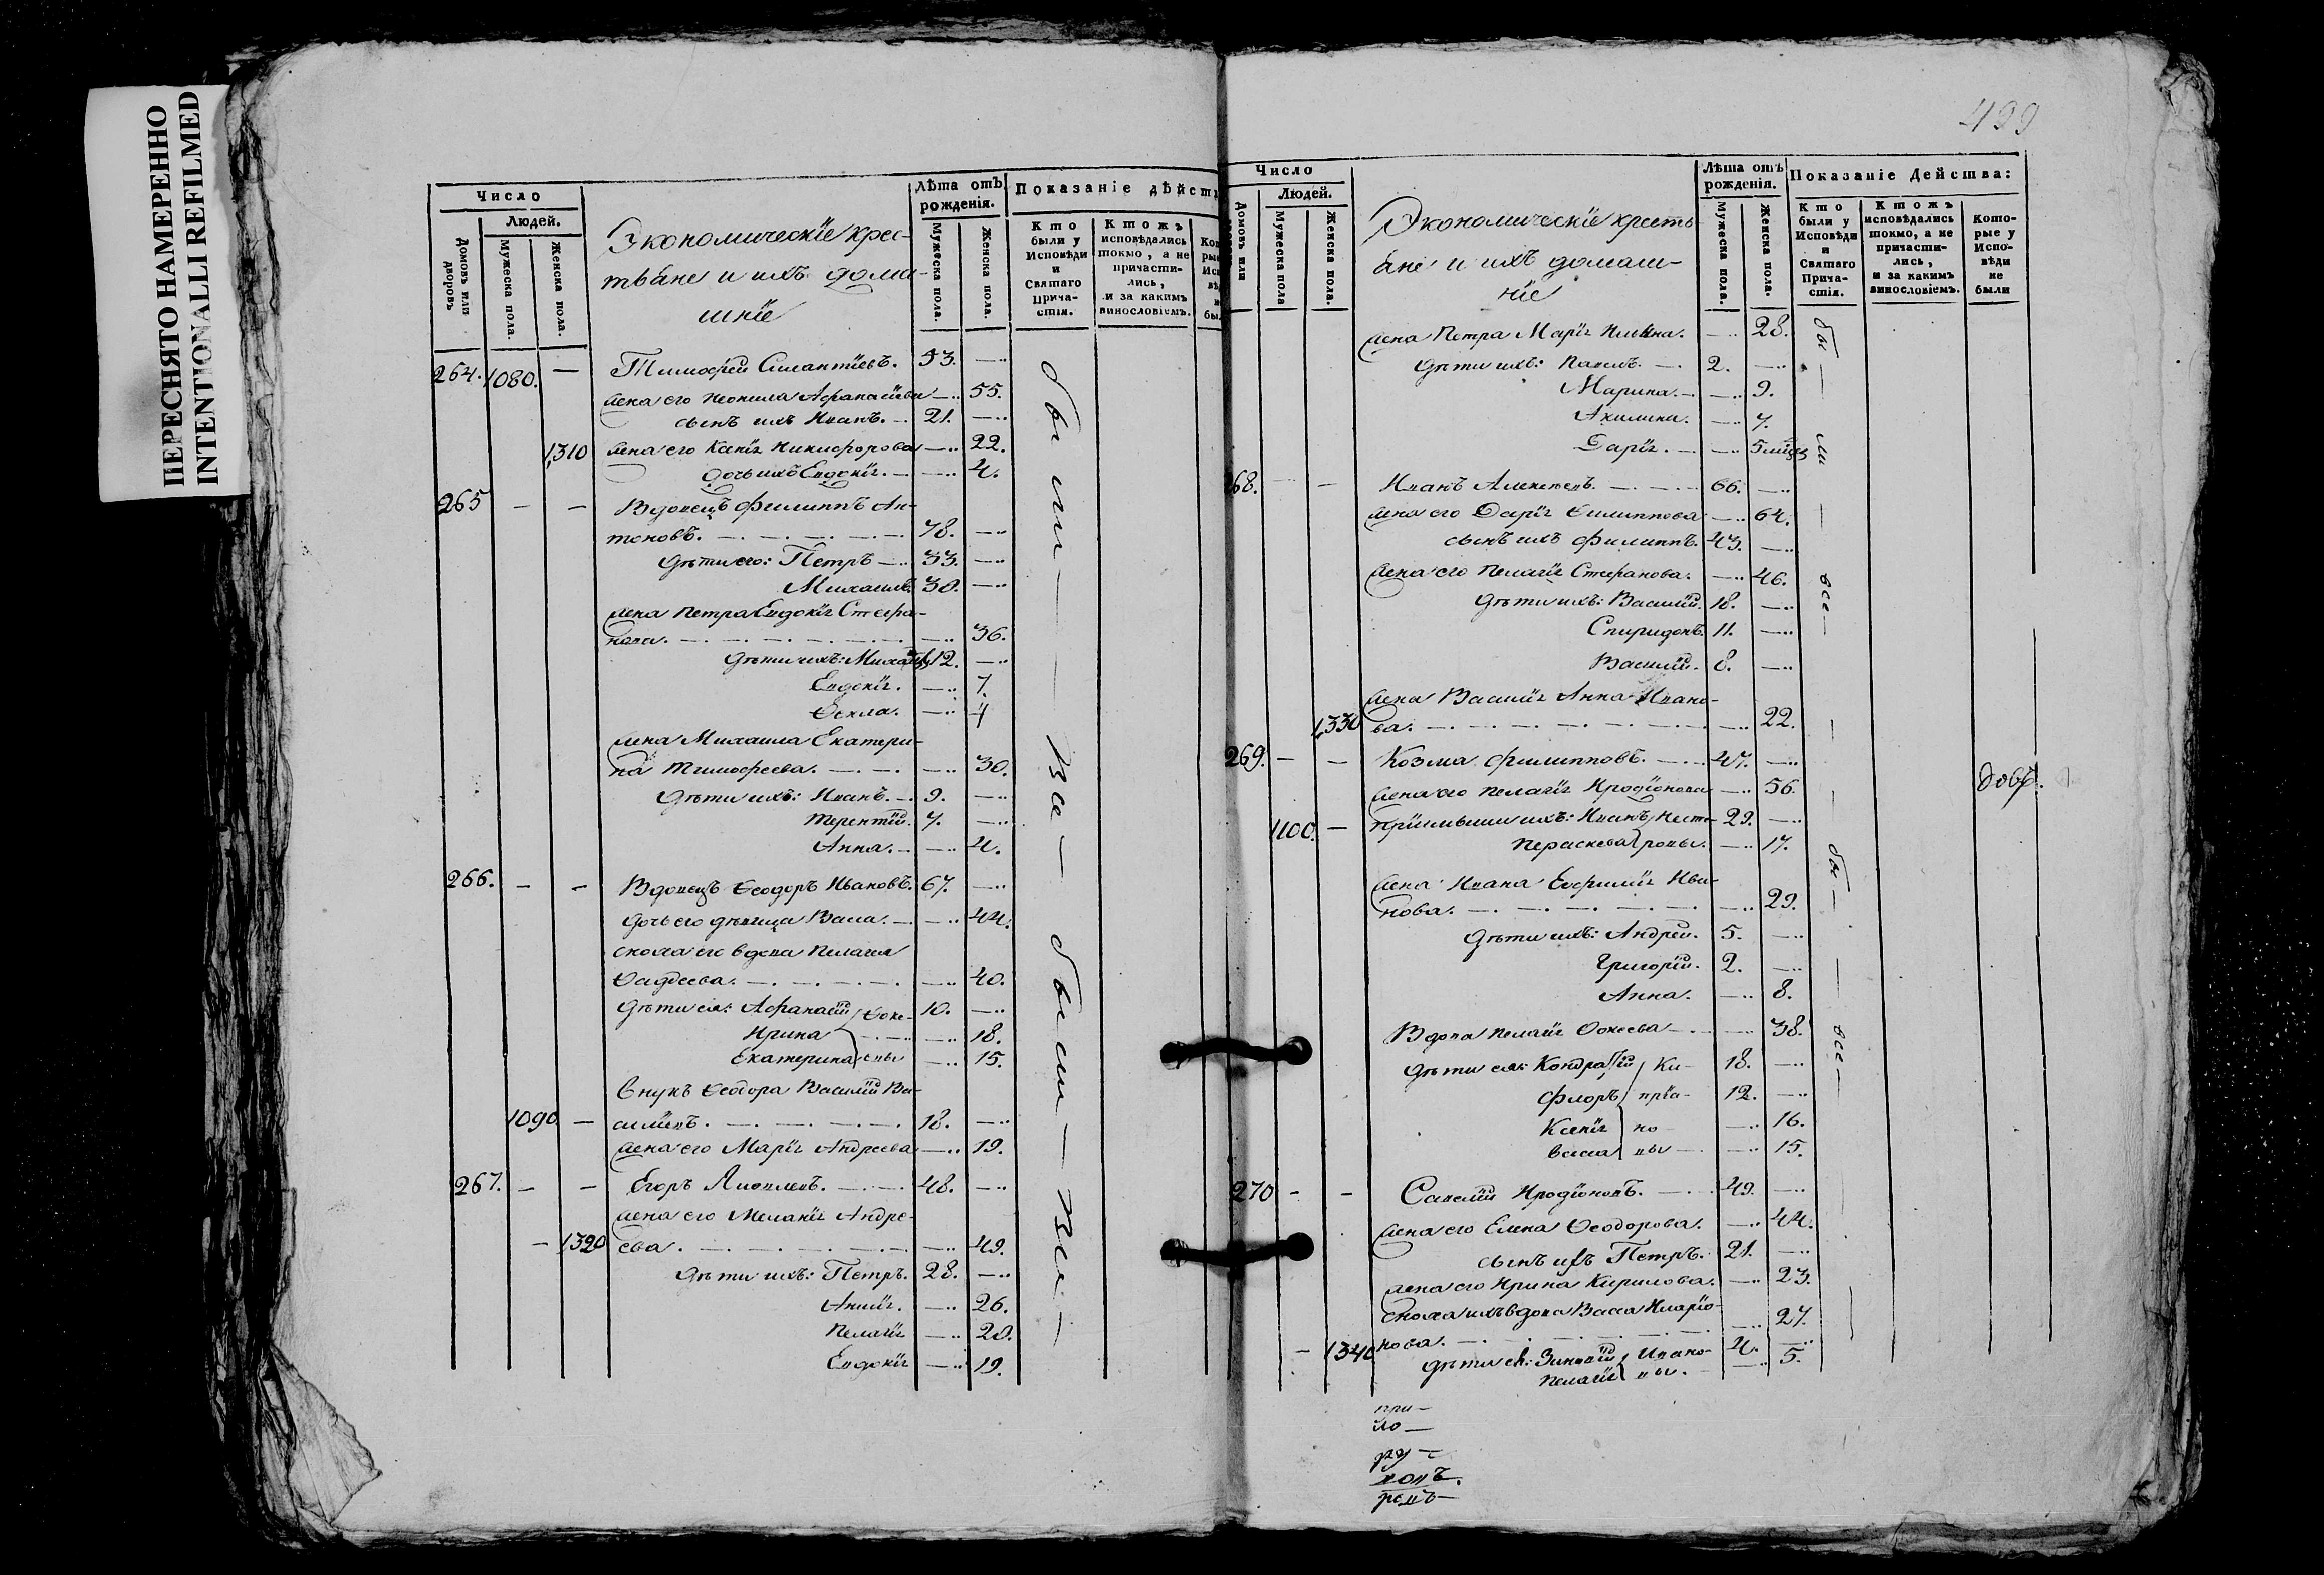 ПЕРЕСНЯТО НАМЕРЕННО
INTENTIONALLI REFILMED
Число
Людей.
Домовъ или дворовъ
Мужеска пола.
Женска пола.
Экономическіе крес-
тьане и ихъ дома-
шніе
Лѣта отъ рожденія.
Мужеска пола.
Женска пола.
Показаніе дѣйст
Кто были у Исповѣди и Святаго Прича-стія.
Ктожъ исповѣдались токмо, а не причасти-лись, и за какимъ винословіемъ.
264. 1080. — Тимофей 53. —
жена его Неонила Афанасіева — 55.
сынъ ихъ Иванъ. — 21. —
1310 жена его Ксенія Никифорова — 22.
дочь ихъ Евдокія. — 4.
265 — — Вдовецъ Филиппъ Ан-
тоновъ. 78. —
дѣти его: Петръ — 33. —
Михаилъ 30. —
жена Петра Евдокія Стефа-
нова. — 36.
дѣти ихъ: Михаилъ 12. —
Евдокія. — 7.
Ѳекла. — 4
жена Михаила Екатери-
на Тимофеева. — 30.
дѣти ихъ: Иванъ. 9. —
Терентій. 7. —
Анна. — 4.
266. — — Вдовецъ Ѳеодоръ Ивановъ. 67. —
дочь его дѣвица Васса. — 44.
сноха его вдова Пелагея
Ѳаддеева. — 40.
дѣти ея: Афанасій Ѳоке- 10. —
Ирина — 18.
Екатерина евы — 15.
внукъ Ѳеодора Василій Ва-
1090 — силіевъ. 18. —
жена его Марія Андреева — 19.
267. — — Егоръ Яковлевъ. 48. —
жена его Меланія Андре-
— 1320 ева. — 49.
дѣти ихъ: Петръ. 28. —
— 26.
Пелагія — 20.
Евдокія — 19.
были — все — были — все —
499
Число
Людей.
Домовъ или
Мужеска пола
Женска пола.
Экономическіе кресть-
ане и ихъ домаш-
ніе
Лѣта отъ рожденія.
Мужеска пола.
Женска пола.
Показаніе Действа:
Кто были у Исповѣди и Святаго Прича-стія.
Ктожъ исповѣдались токмо, а не причасти-лись, и за какимъ винословіемъ.
Кото-рые у Испо-вѣди не были
жена Петра Марія Ильина. — 28.
дѣти ихъ: Павелъ. 2. —
Марина. — 9.
Акилина. — 7.
Дарія. — 5
268. — — Иванъ Алексеевъ. 66. —
жена его Дарія Филиппова — 64.
сынъ ихъ Филиппъ. 43. —
жена его Пелагія Стефанова. — 46.
дѣти ихъ: Василій. 18. —
Спиридонъ. 11. —
Василій. 8. —
жена Василія Анна Ивано-
1330 ва. — 22.
269. — — Козма Филипповъ. 47. —
жена его Пелагія Иродіонова — 56.
1100. — пріимыши ихъ: Иванъ Несте- 29. —
Параскева ровы. — 17.
жена Ивана Евфимія Ива-
нова. — 29.
дѣти ихъ: Андрей. 5. —
Григорій. 2. —
Анна. — 8.
Вдова Пелагія Ѳокеева — 38.
дѣти ея: Кондратій Ки- 18. —
Флоръ пріа- 12. —
Ксенія но — 16.
Васса вы — 15.
270 — — Савелій Иродіоновъ. 49. —
жена его Елена Ѳеодорова. — 44.
сынъ ихъ Петръ. 21. —
жена его Ирина Кирилова. — 23.
сноха ихъ вдова Васса Иларіо-
— 1340 нова. — 27.
дѣти ея: Зиновій Ивано- 4. —
Пелагія вы. — 5.
бы — ли — все — бы — все —
при —